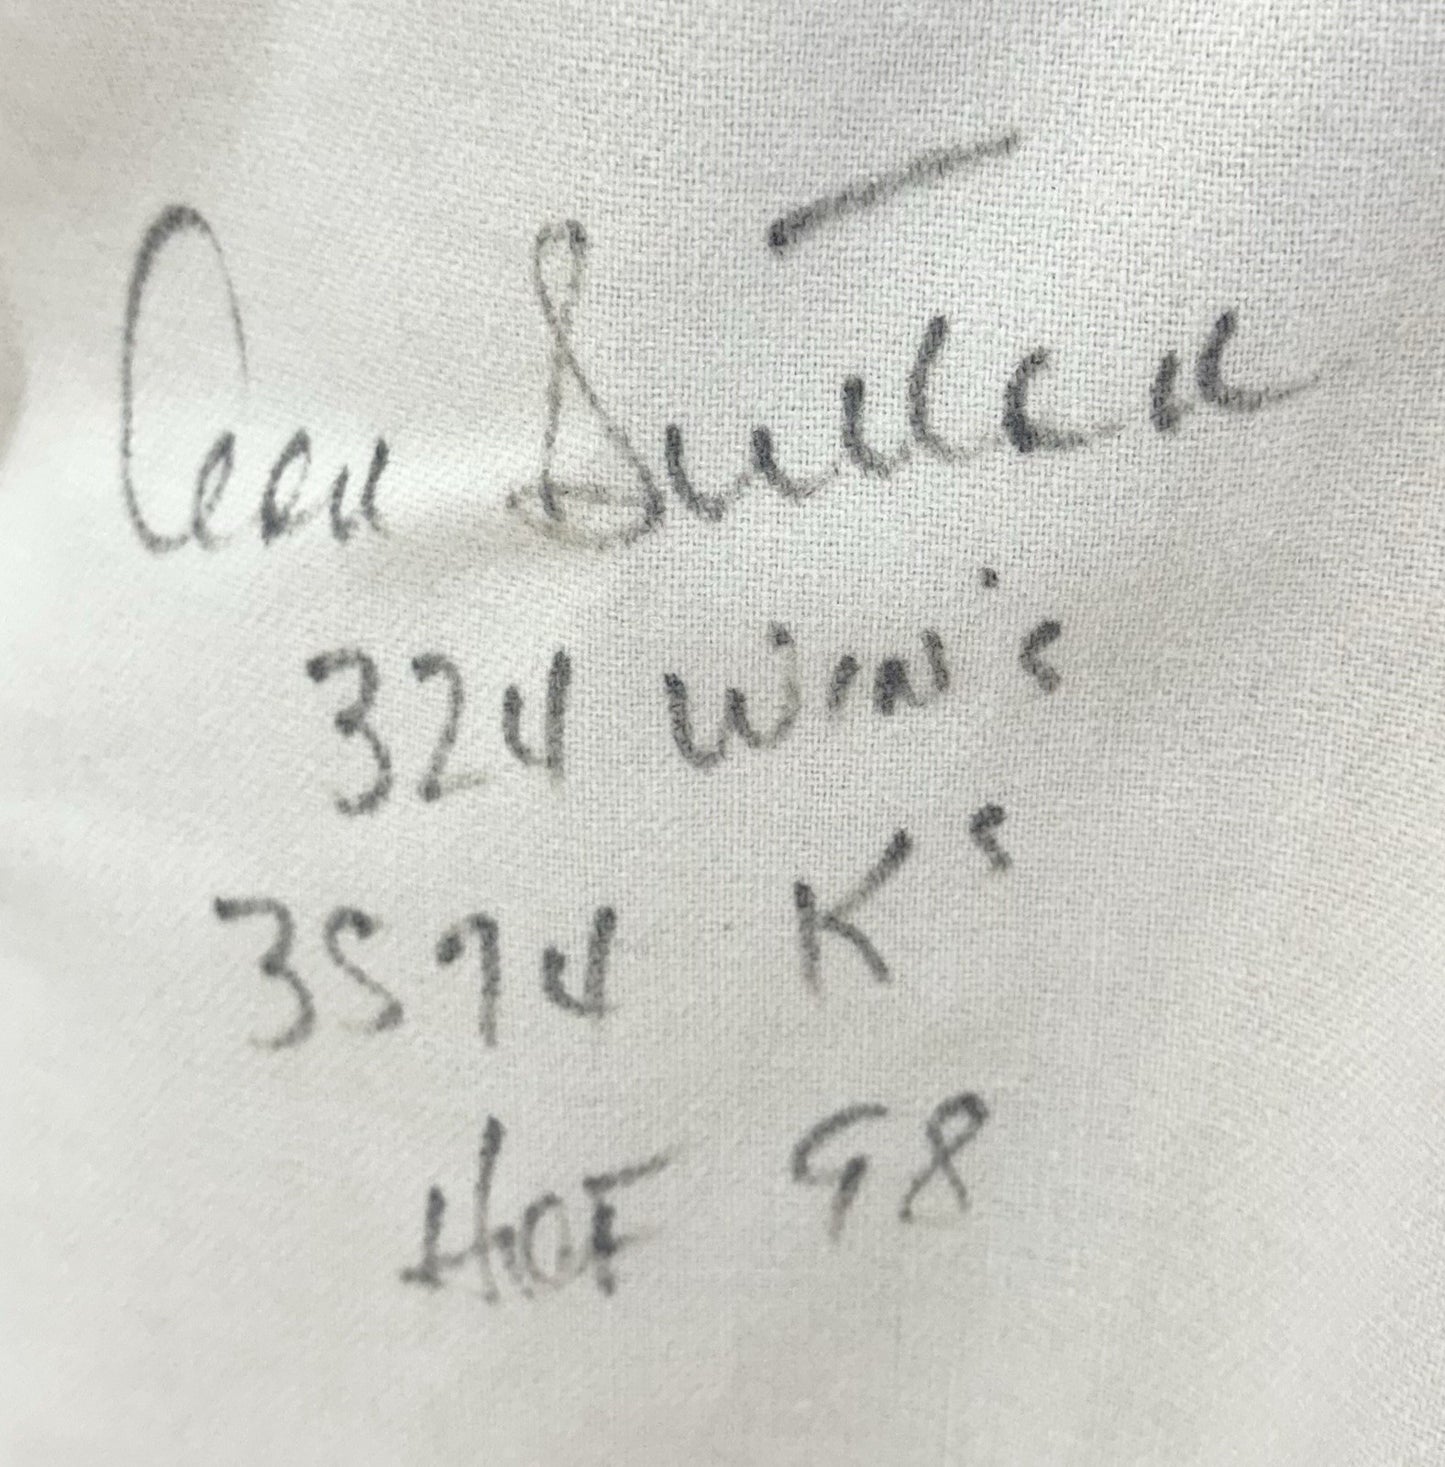 Don Sutton
324 Win's
3574 K's
HOF 98